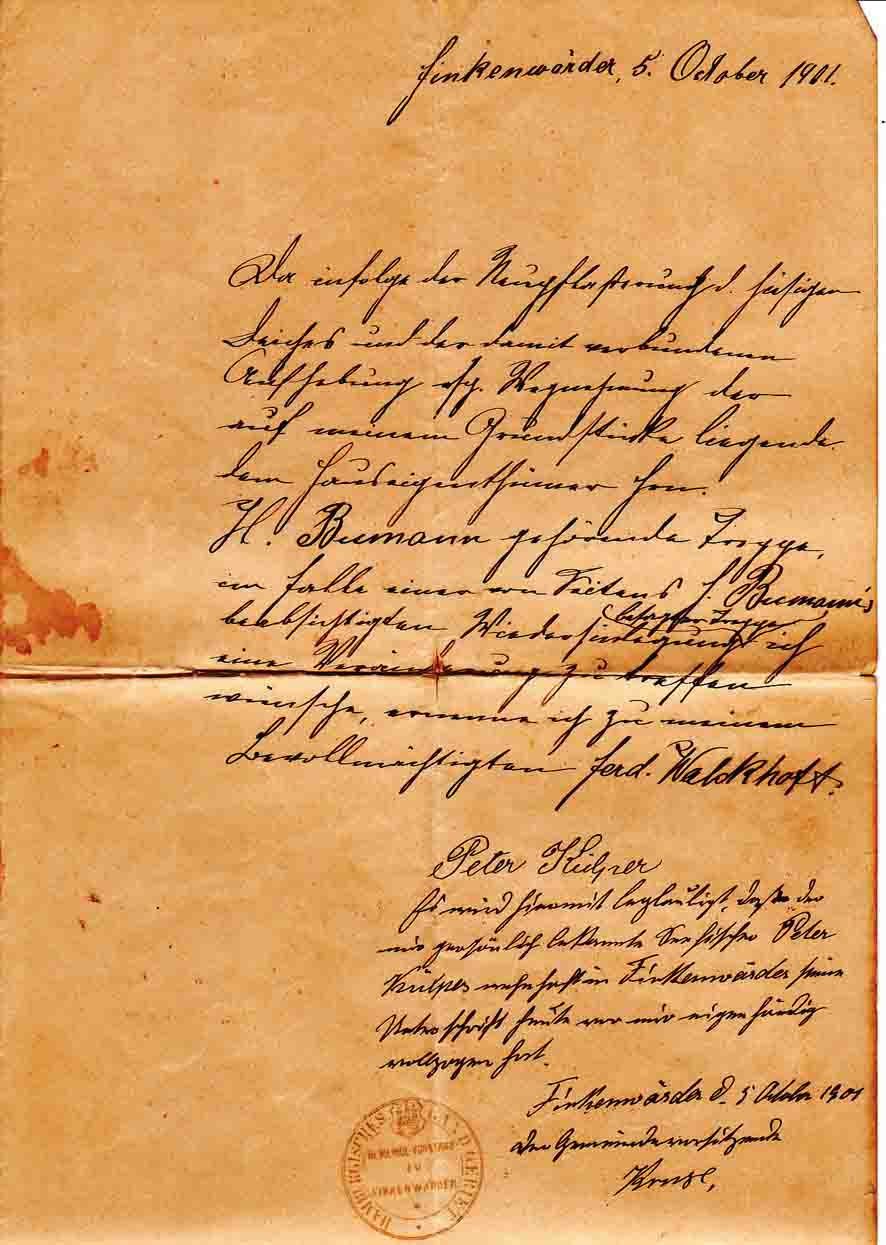 Finkenwärder, 5. October 1901.
Da infolge der Neupflasterung d. hiesigen
Deiches und der damit verbundenen
Aufhebung resp. Wegnehmung der
auf meinem Grundstücke liegende.
dem Hauseigenthümer Hrn.
H. Bumann gehörende Treppe,
im Falle einer von Seitens H. Bumann's
beabsichtigten Wiederhinlegung besagter Treppe ich
eine Veränderung zu treffen
wünsche, ernenne ich zu meinem
Bevollmächtigten Ferd. Waldkhoft.
Peter Külper
Es wird hiermit beglaubigt, daß der
mir persönlich bekannte Seefischer Peter
Külper wohnhaft in Finkenwärder seine
Unterschrift heute vor mir eigenhändig
vollzogen hat.
Finkenwärder d. 5 October 1901
Der Gemeindevorsitzende
HAMBURGISCHES LANDGEBIET
ZU
FINKENWÄRDER